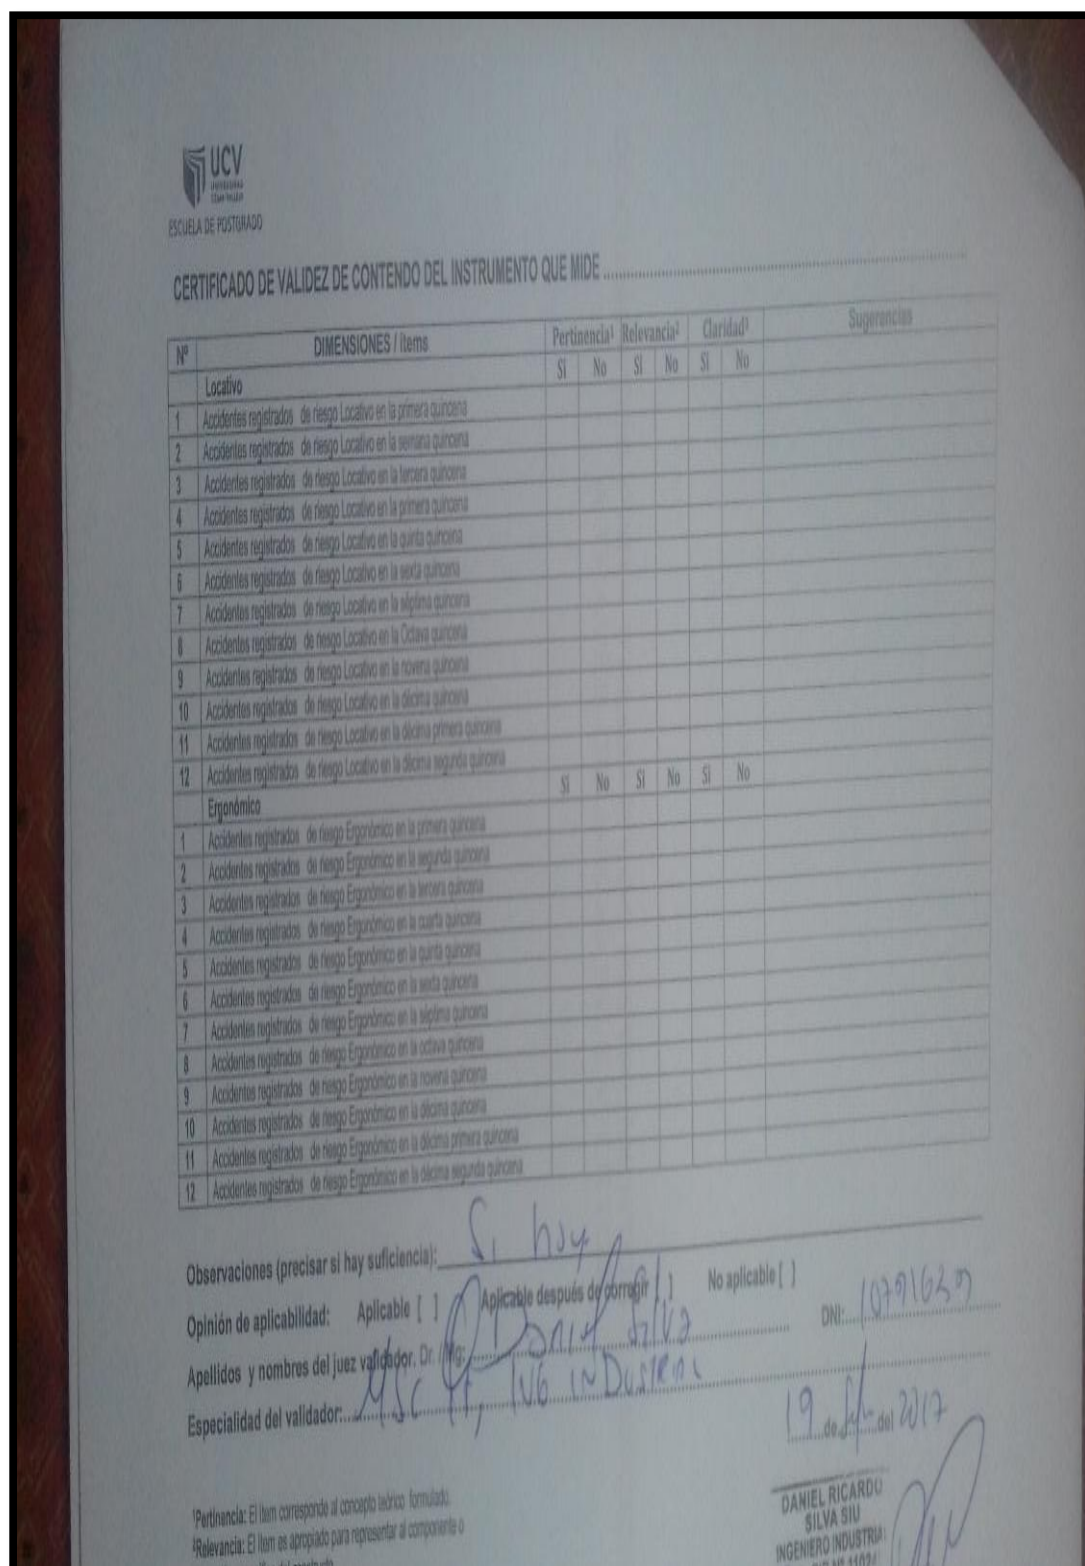 UCV
UNIVERSIDAD
CÉSAR VALLEJO
ESCUELA DE POSTGRADO
CERTIFICADO DE VALIDEZ DE CONTENDO DEL INSTRUMENTO QUE MIDE
Nº DIMENSIONES / ítems Pertinencia¹ Relevancia² Claridad³ Sugerencias
Locativo Si No Si No Si No
1 Accidentes registrados de riesgo Locativo en la primera quincena
2 Accidentes registrados de riesgo Locativo en la semana quincena
3 Accidentes registrados de riesgo Locativo en la tercera quincena
4 Accidentes registrados de riesgo Locativo en la primera quincena
5 Accidentes registrados de riesgo Locativo en la quinta quincena
6 Accidentes registrados de riesgo Locativo en la sexta quincena
7 Accidentes registrados de riesgo Locativo en la séptima quincena
8 Accidentes registrados de riesgo Locativo en la Octava quincena
9 Accidentes registrados de riesgo Locativo en la novena quincena
10 Accidentes registrados de riesgo Locativo en la décima quincena
11 Accidentes registrados de riesgo Locativo en la décima primera quincena
12 Accidentes registrados de riesgo Locativo en la décima segunda quincena
Ergonómico Si No Si No Si No
1 Accidentes registrados de riesgo Ergonómico en la primera quincena
2 Accidentes registrados de riesgo Ergonómico en la segunda quincena
3 Accidentes registrados de riesgo Ergonómico en la tercera quincena
4 Accidentes registrados de riesgo Ergonómico en la cuarta quincena
5 Accidentes registrados de riesgo Ergonómico en la quinta quincena
6 Accidentes registrados de riesgo Ergonómico en la sexta quincena
7 Accidentes registrados de riesgo Ergonómico en la séptima quincena
8 Accidentes registrados de riesgo Ergonómico en la octava quincena
9 Accidentes registrados de riesgo Ergonómico en la novena quincena
10 Accidentes registrados de riesgo Ergonómico en la décima quincena
11 Accidentes registrados de riesgo Ergonómico en la décima primera quincena
12 Accidentes registrados de riesgo Ergonómico en la décima segunda quincena
Observaciones (precisar si hay suficiencia): Si hay
Opinión de aplicabilidad: Aplicable [ ] Aplicable después de corregir [ ] No aplicable [ ]
Apellidos y nombres del juez validador. Dr. Daniel Silva DNI:
Especialidad del validador: MSc ING INDUSTRIAL
19 de del 2017
¹Pertinencia: El ítem corresponde al concepto teórico formulado.
²Relevancia: El ítem es apropiado para representar al componente o
DANIEL RICARDO
SILVA SIU
INGENIERO INDUSTRIAL